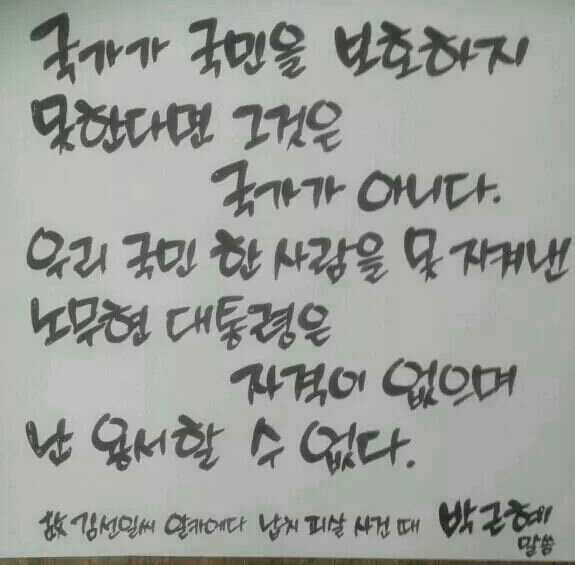 국가가 국민을 보호하지
못한다면 그것은
국가가 아니다.
우리 국민 한 사람을 못 지켜낸
노무현 대통령은
자격이 없으며
난 용서할 수 없다.
故 김선일씨 알카에다 납치 피살 사건 때 박근혜
말씀